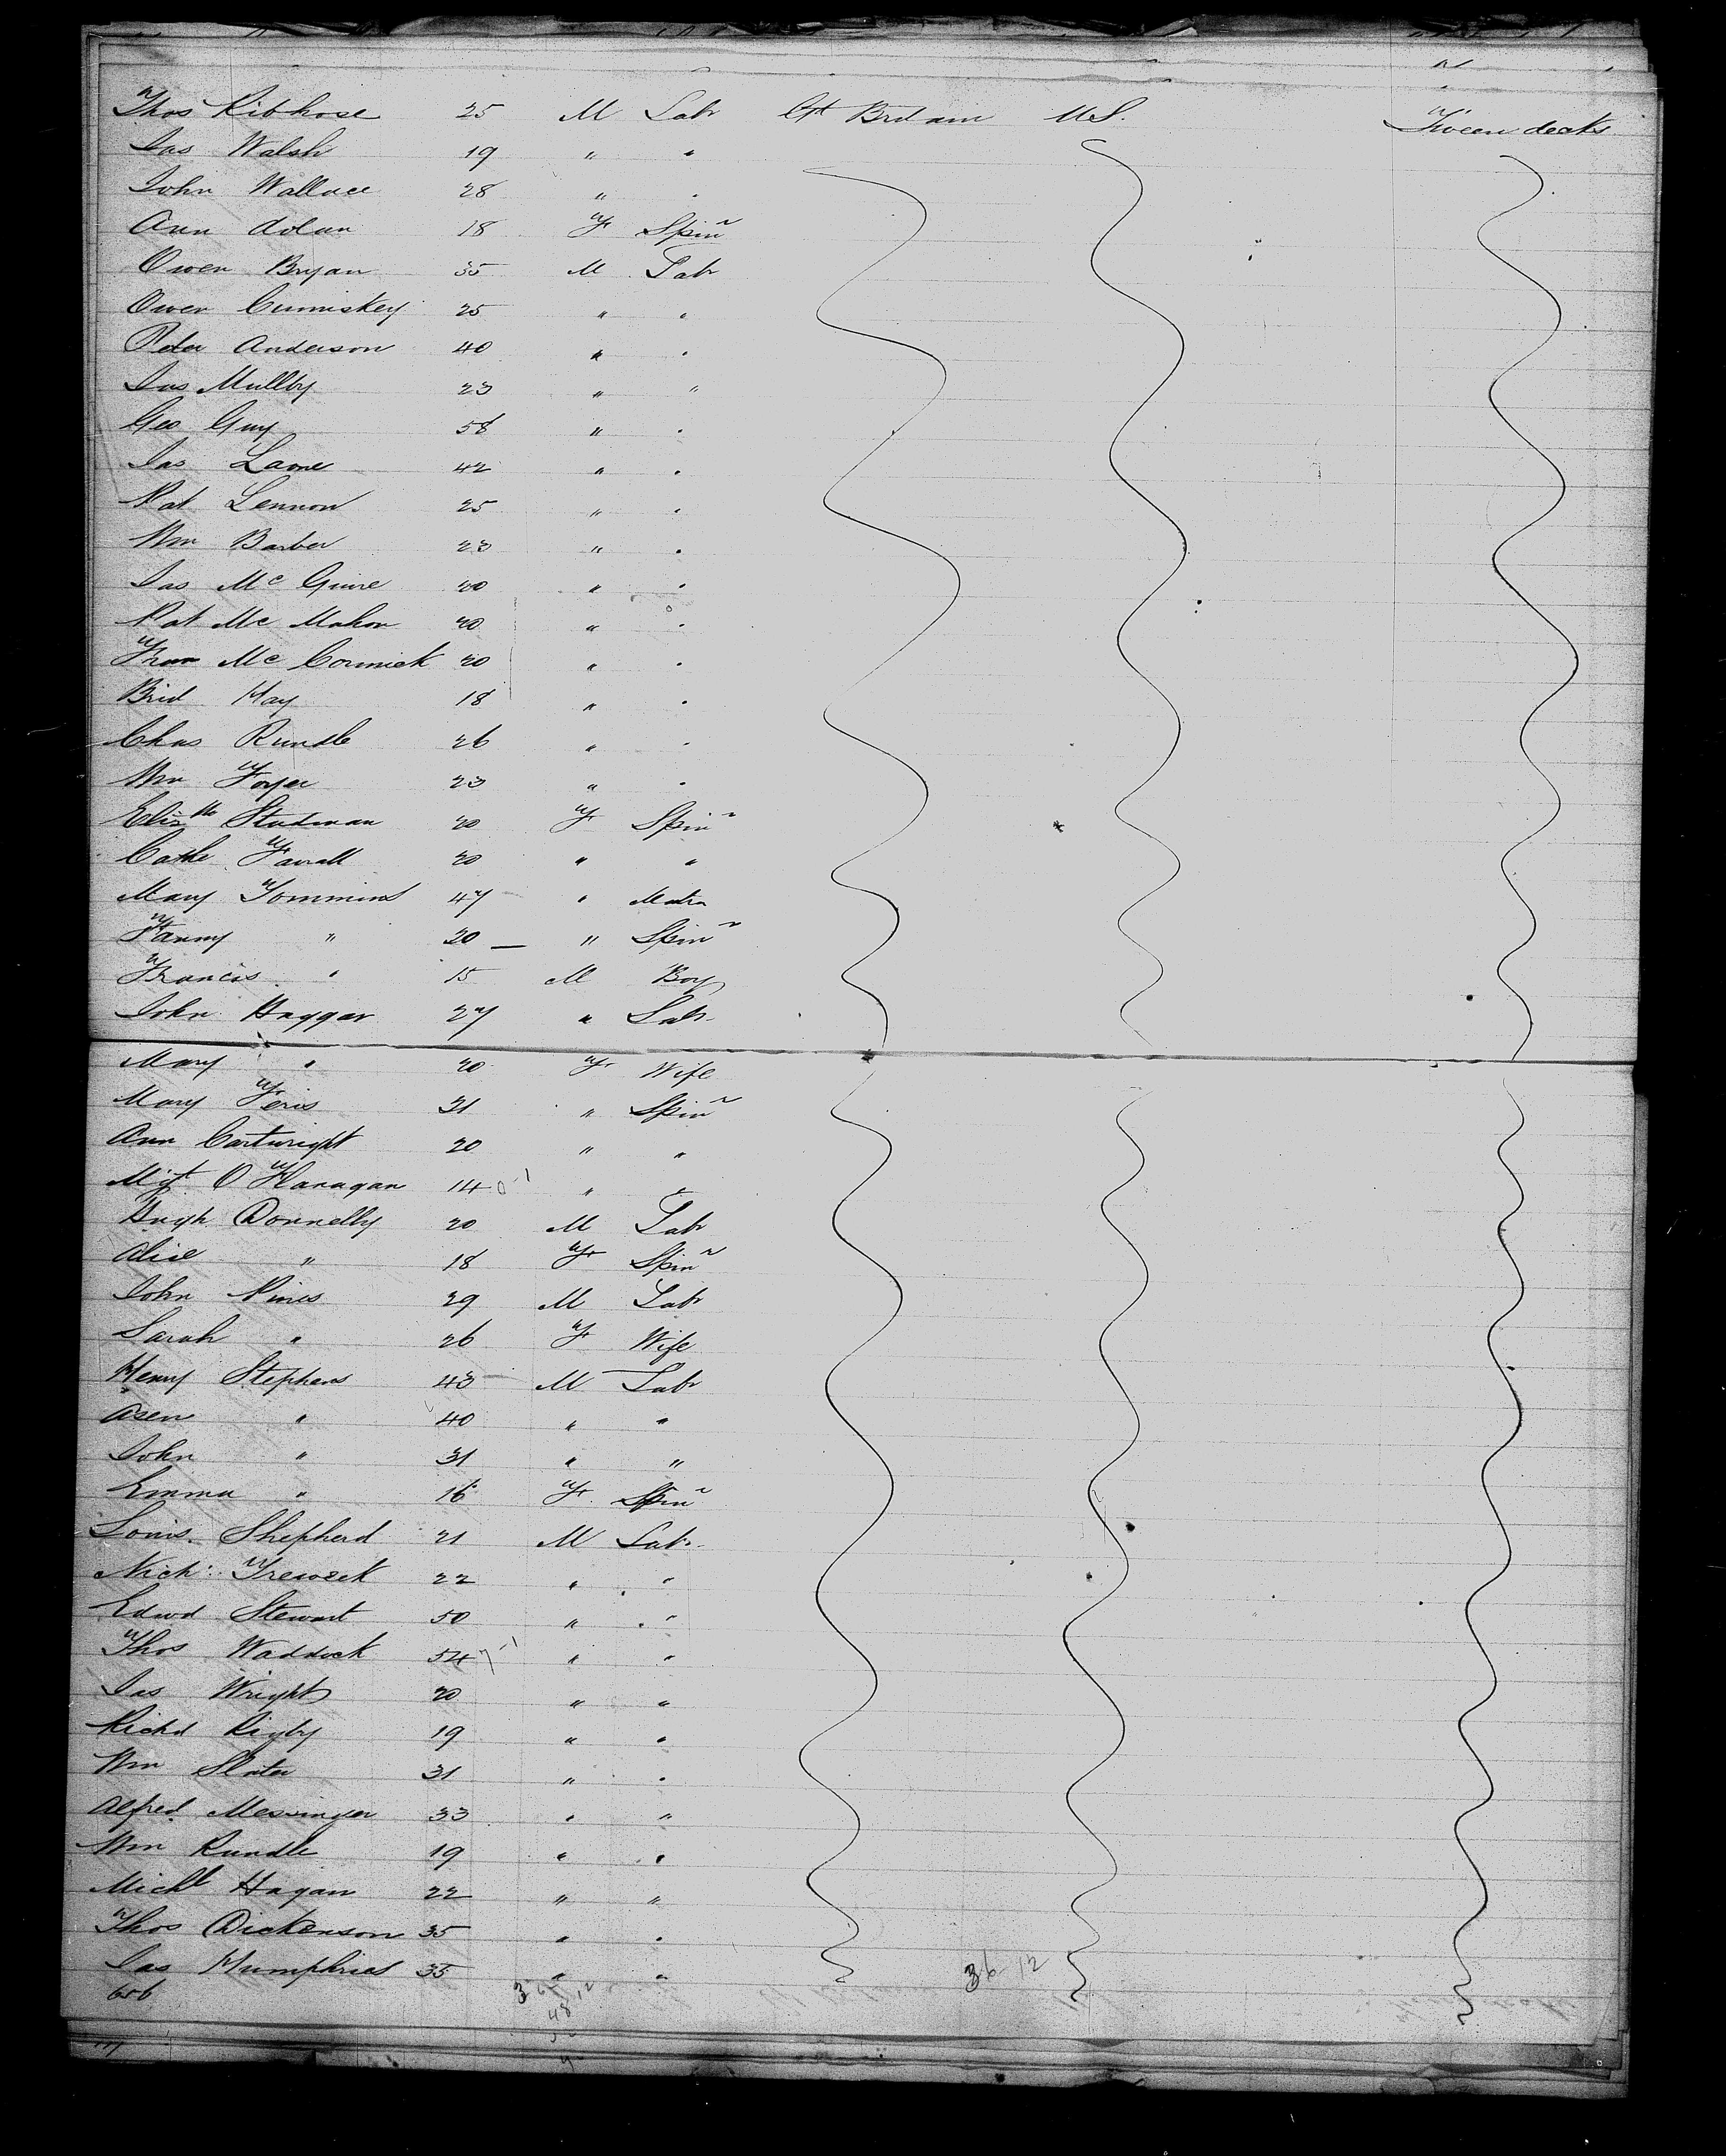 Thos Kibhose 25 M Labr Gt Britain U.S. Tween decks
Jas Walsh 19 " "
John Wallace 28 " "
Ann Dolan 18 F Spinr
Owen Bryan 35 M Labr
Owen Cumiskey 25 " "
Peter Anderson 40 " "
Jas Mullby 23 " "
Geo Guy 58 " "
Jas Lame 42 " "
Pat Lennon 25 " "
Wm Barber 23 " "
Jas Mc Guire 20 " "
Pat Mc Mahon 20 " "
Fran Mc Cormick 20 " "
Brid Hay 18 " "
Chas Rundle 26 " "
Wm 23 " "
Elizth Studman 20 F Spinr
Cathe Farrall 20 " "
Mary Tommins 47 " Matr
Fanny " 20 " Spinr
Francis " 15 M Boy
John Haggar 27 " Labr
Mary " 20 F Wife
Mary Feris 31 " Spinr
Ann Cartwright 20 " "
Mgt O Flanagan 14 " "
Hugh Donnelly 20 M Labr
Alice " 18 F Spinr
John Pines 29 M Labr
Sarah " 26 F Wife
Henry Stephens 43 M Labr
Asen " 40 " "
John " 31 " "
Emma " 16 F Spinr
Louis Shepherd 21 M Labr
Nich: Treweek 22 " "
Edwd Stewart 50 " "
Thos Waddock 54 " "
Jas Wright 20 " "
Richd Rigby 19 " "
Wm Slater 31 " "
Alfred Messinger 33 " "
Wm Rundle 19 " "
Michl Hagan 22 " "
Thos Dickenson 35 " "
Jas Humphries 35 " "
656 48 36 12